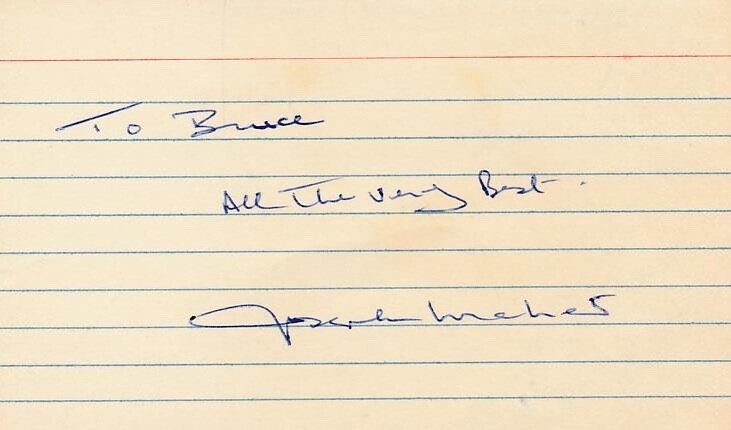 To Bruce
All The very Best.
Joseph Maher